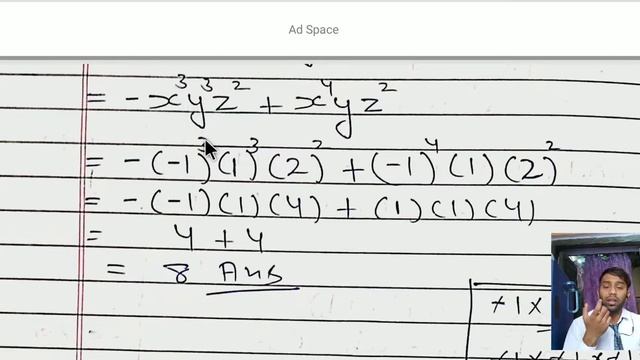 Ad Space
= -x³y³z² + x⁴yz²
= -(-1)³(1)³(2)² + (-1)⁴(1)(2)²
= -(-1)(1)(4) + (1)(1)(4)
= 4 + 4
= 8 Ans
+1×